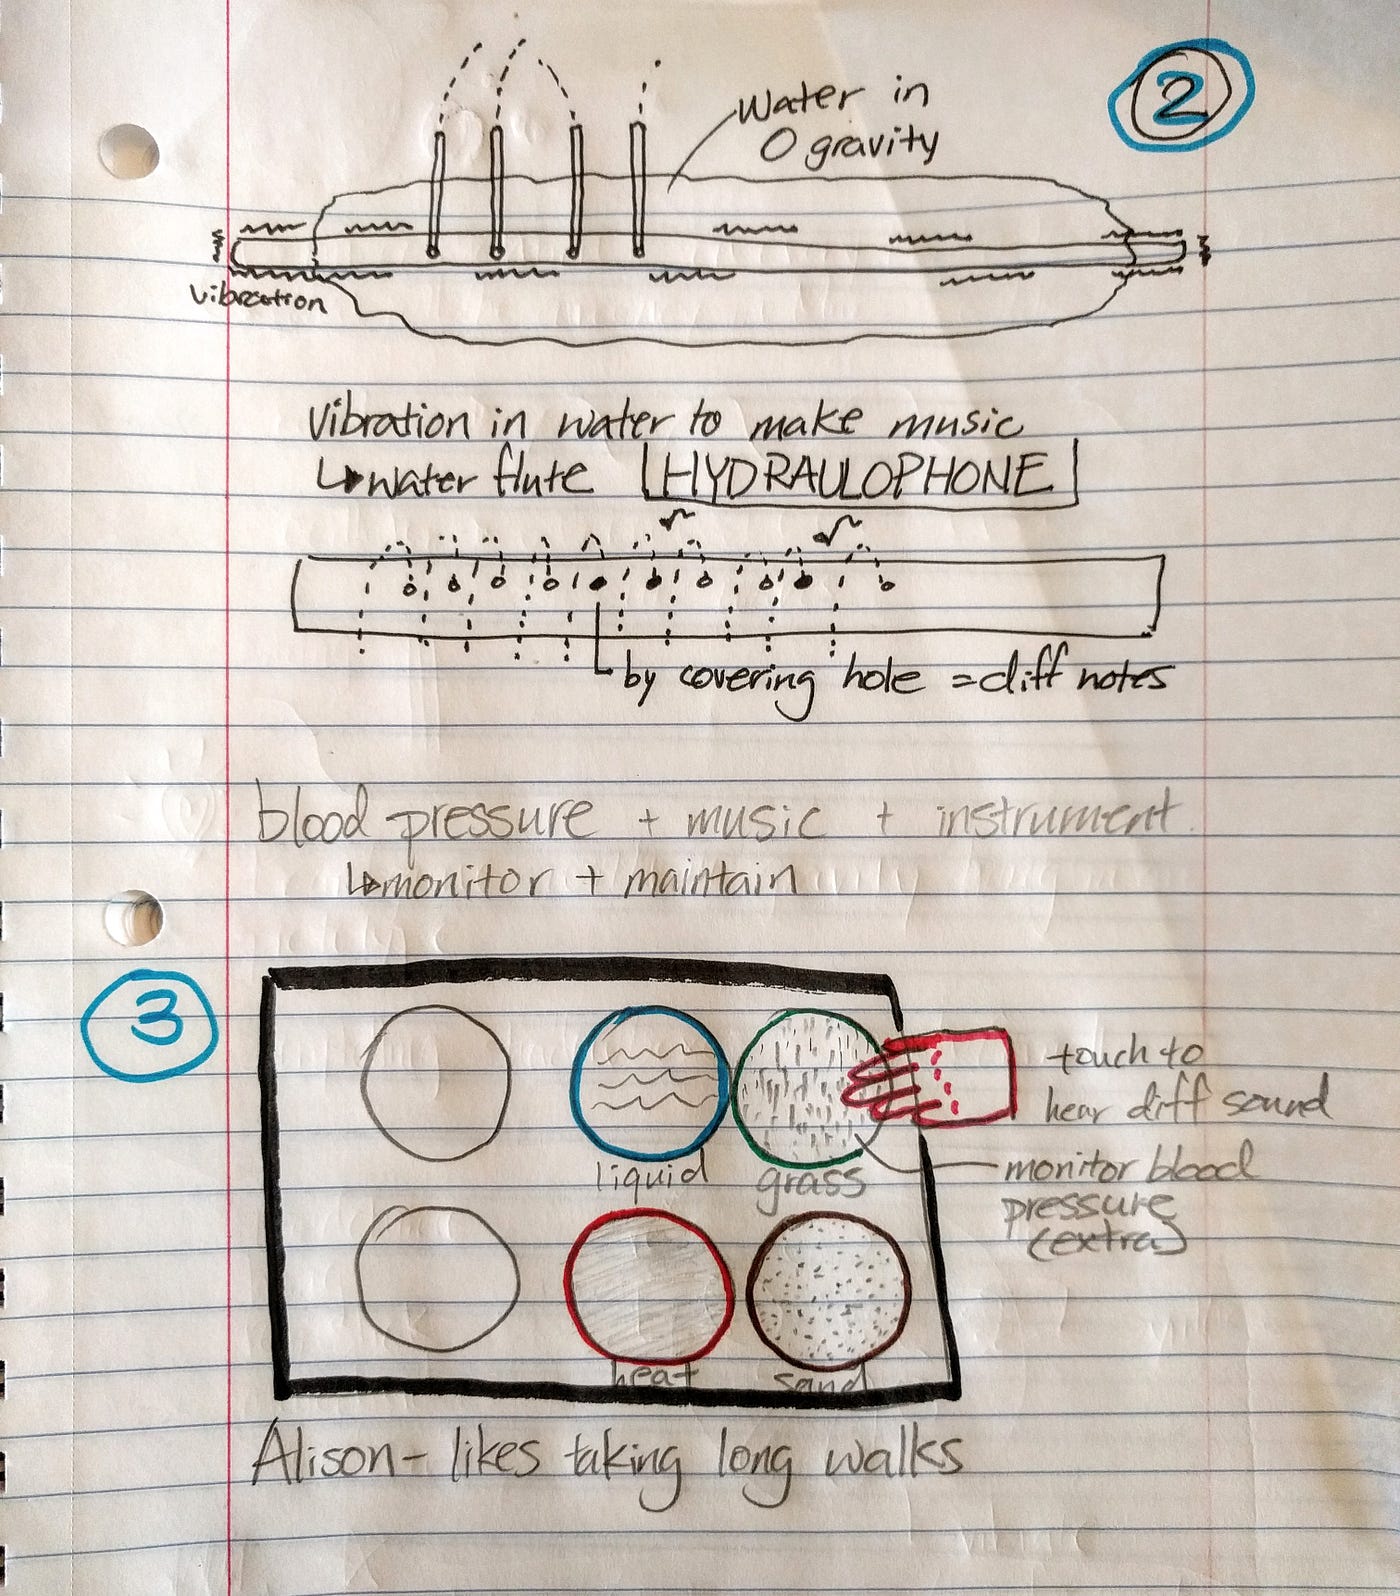 2
Water in
0 gravity
vibration
Vibration in water to make music
↳water flute HYDRAULOPHONE
by covering hole = diff notes
blood pressure + music + instrument
↳monitor + maintain
3
touch to
hear diff sound
liquid
grass
monitor blood
pressure
(extra)
heat
sand
Alison- likes taking long walks